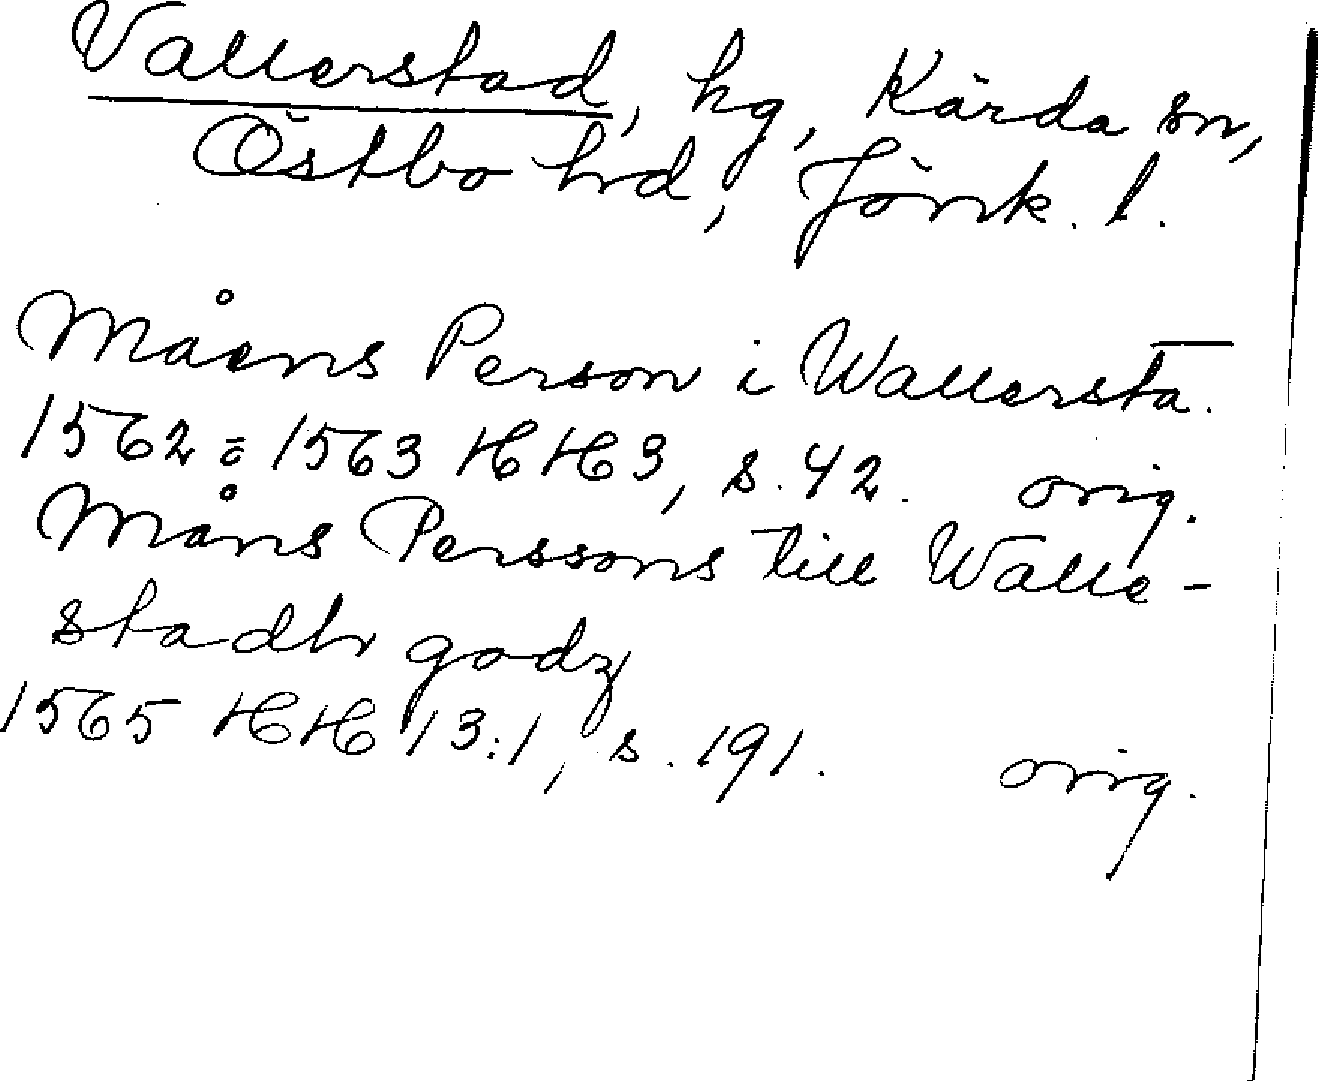 Vallerstad, hg, Kärda sn,
Östbo hrd, Jönk. l.
Måens Person i Wallersta̅.
1562 ō 1563 HH3, s. 42. orig.
Måns Perssons till Walle-
stadh godz
1565 HH 13:1, s. 191. orig.